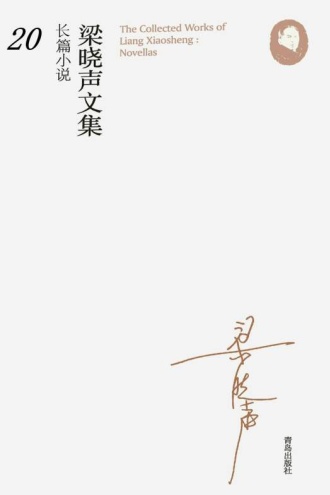 20
长篇小说
梁晓声文集
The Collected Works of
Liang Xiaosheng :
Novellas
梁晓声
青岛出版社